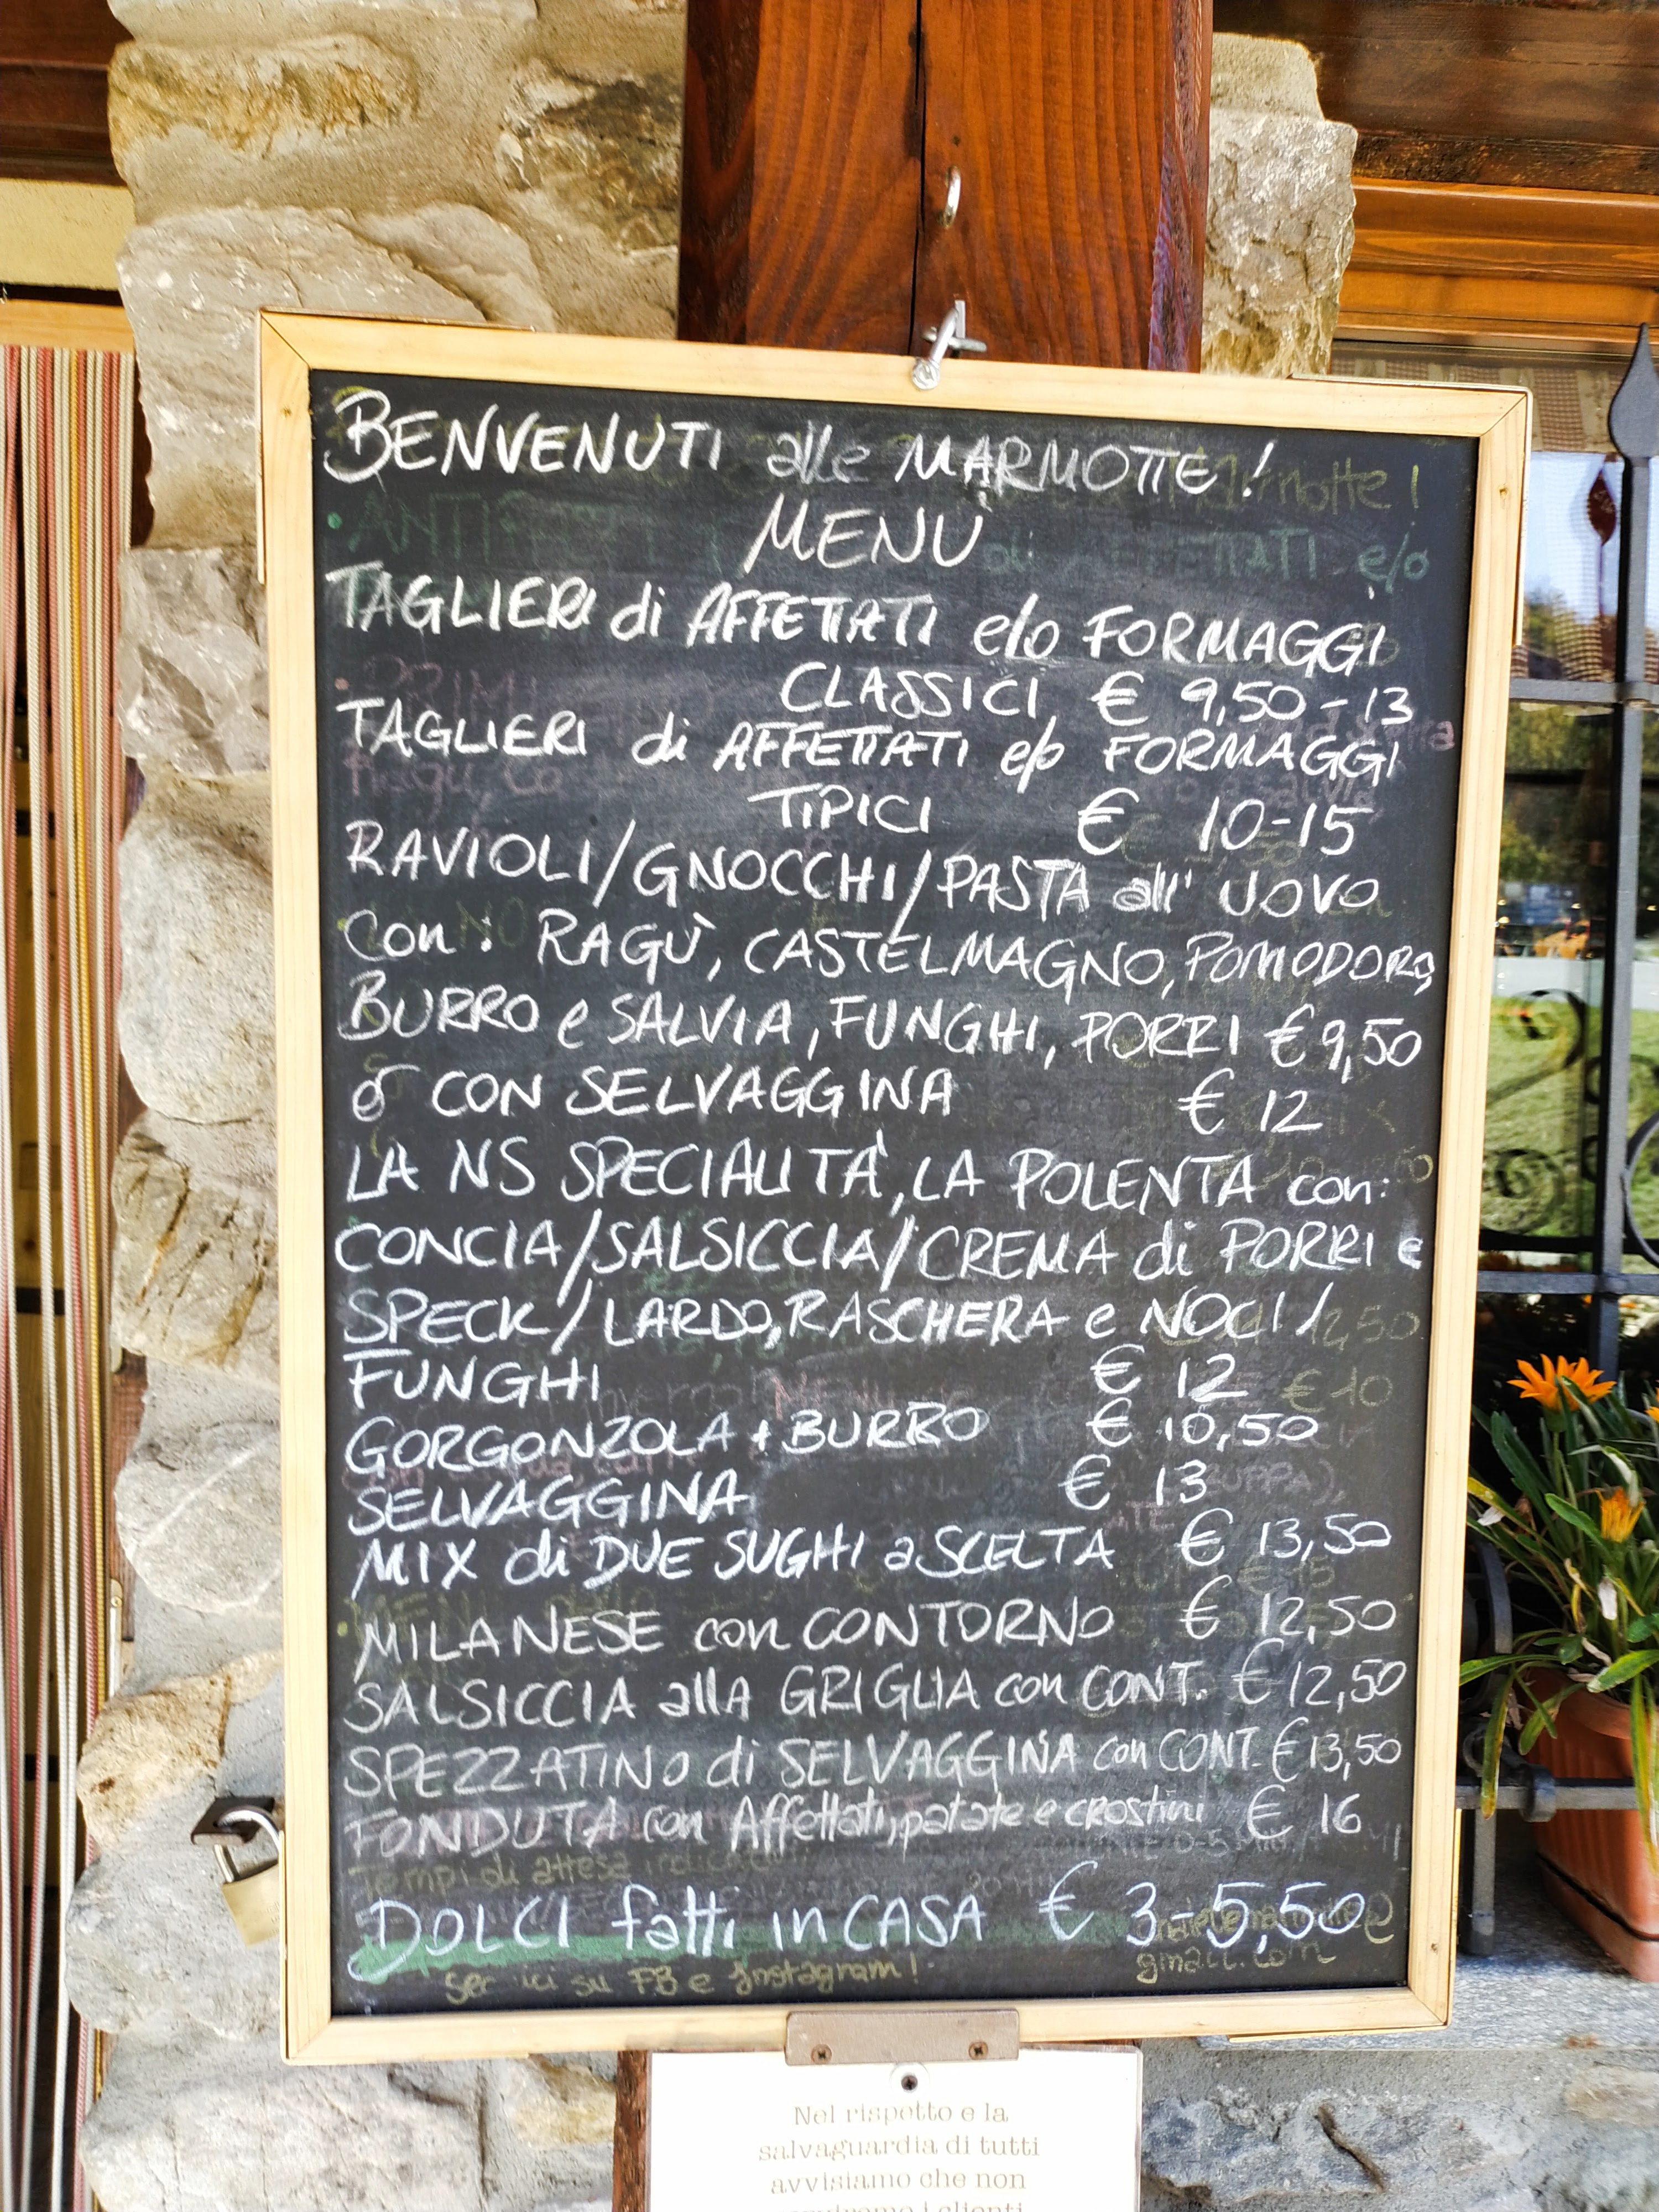 BENVENUTI alle MARMOTTE!
MENÙ
TAGLIERI di AFFETTATI e/o FORMAGGI
CLASSICI € 9,50-13
TAGLIERI di AFFETTATI e/o FORMAGGI
TIPICI € 10-15
RAVIOLI/GNOCCHI/PASTA all' UOVO
con: RAGÙ, CASTELMAGNO, POMODORO,
BURRO e SALVIA, FUNGHI, PORRI €9,50
o CON SELVAGGINA € 12
LA NS SPECIALITÀ, LA POLENTA con:
CONCIA/SALSICCIA/CREMA di PORRI e
SPECK/LARDO, RASCHERA e NOCI/
FUNGHI € 12
GORGONZOLA + BURRO € 10,50
SELVAGGINA € 13
MIX di DUE SUGHI a SCELTA € 13,50
MILANESE con CONTORNO € 12,50
SALSICCIA allA GRIGLIA con CONT. € 12,50
SPEZZATINO di SELVAGGINA con CONT. €13,50
FONDUTA con Affettati, patate e crostini € 16
Tempi di attesa
DOLCI fatti in CASA € 3-5,50
su FB e Instagram!
gmail.com
Nel rispetto e la
salvaguardia di tutti
avvisiamo che non